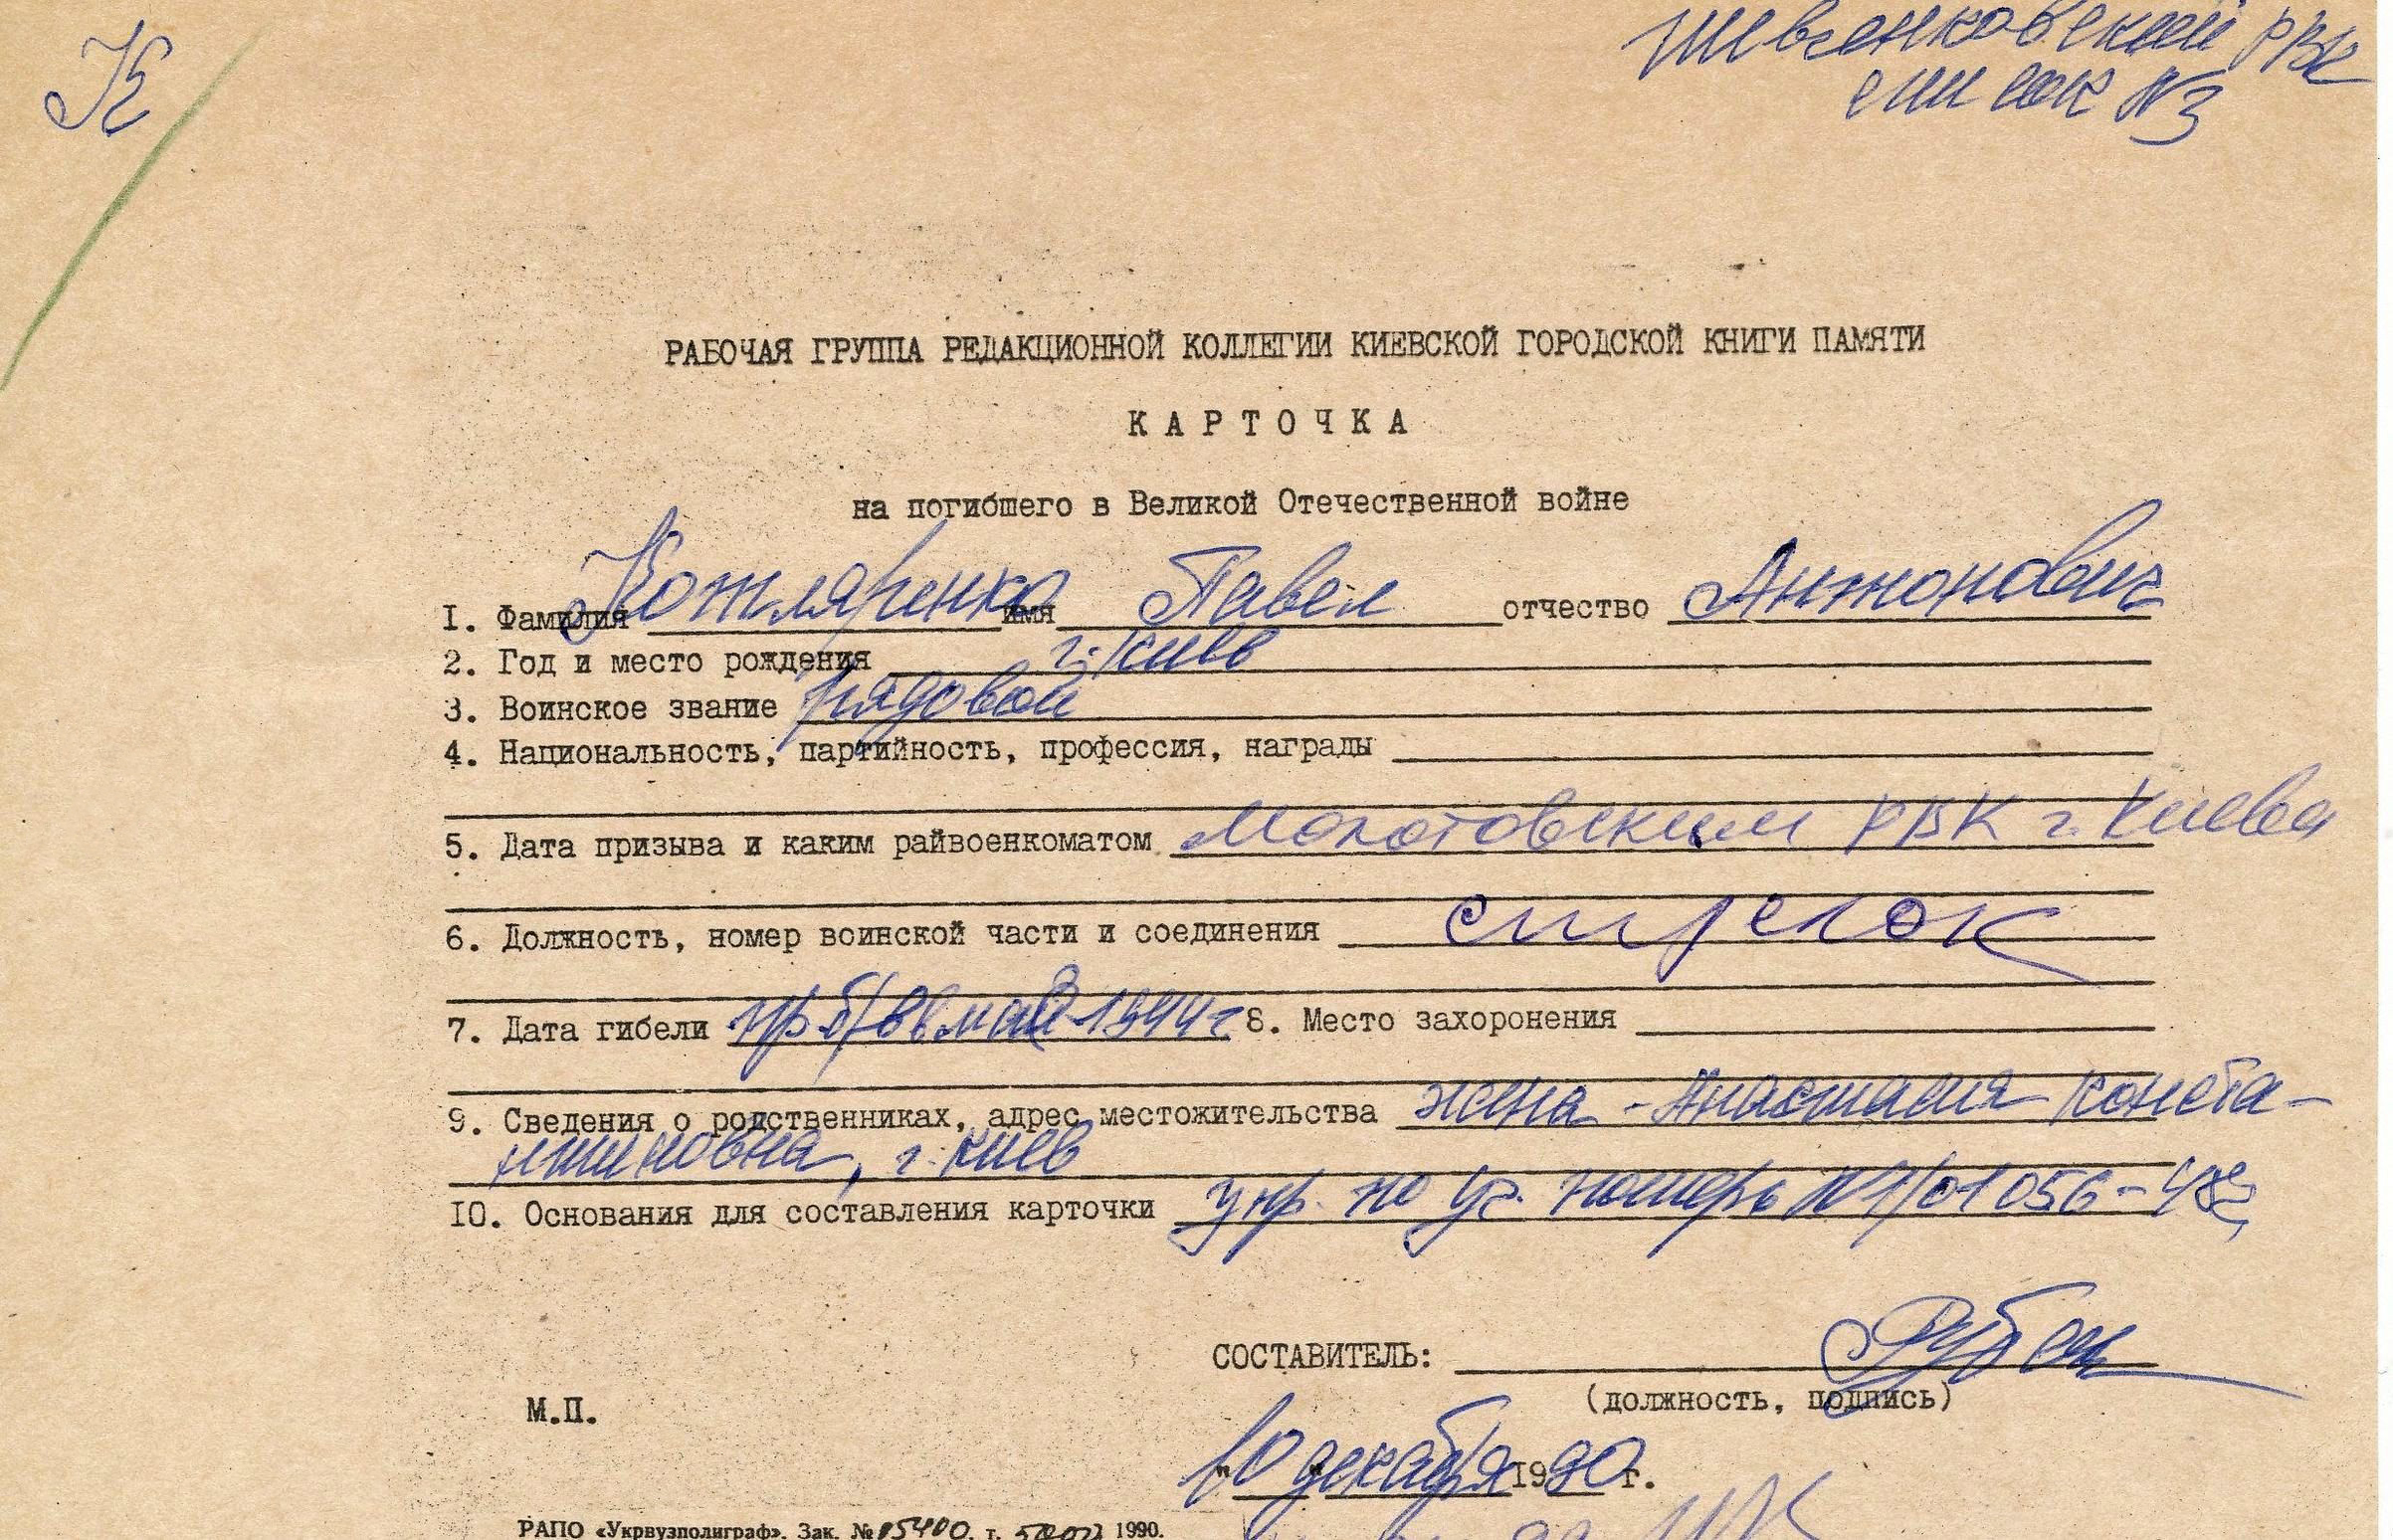 К
Шевченковский РВК
список N3
РАБОЧАЯ ГРУППА РЕДАКЦИОННОЙ КОЛЛЕГИИ КИЕВСКОЙ ГОРОДСКОЙ КНИГИ ПАМЯТИ
КАРТОЧКА
на погибшего в Великой Отечественной войне
I. Фамилия Котляренко имя Павел отчество Антонович
2. Год и место рождения г. Киев
3. Воинское звание рядовой
4. Национальность, партийность, профессия, награды
5. Дата призыва и каким райвоенкоматом Молотовским РВК г. Киева
6. Должность, номер воинской части и соединения стрелок
7. Дата гибели пр. б/в в мае 1944 г 8. Место захоронения
9. Сведения о родственниках, адрес местожительства жена - Анастасия Конста-
нтиновна, г. Киев
10. Основания для составления карточки упр. по уч. потерь N1/01056-
СОСТАВИТЕЛЬ:
(должность, подпись)
М.П.
"10" декабря 1990 г.
РАПО «Укрвузполиграф». Зак. № 05400. т. 1990.